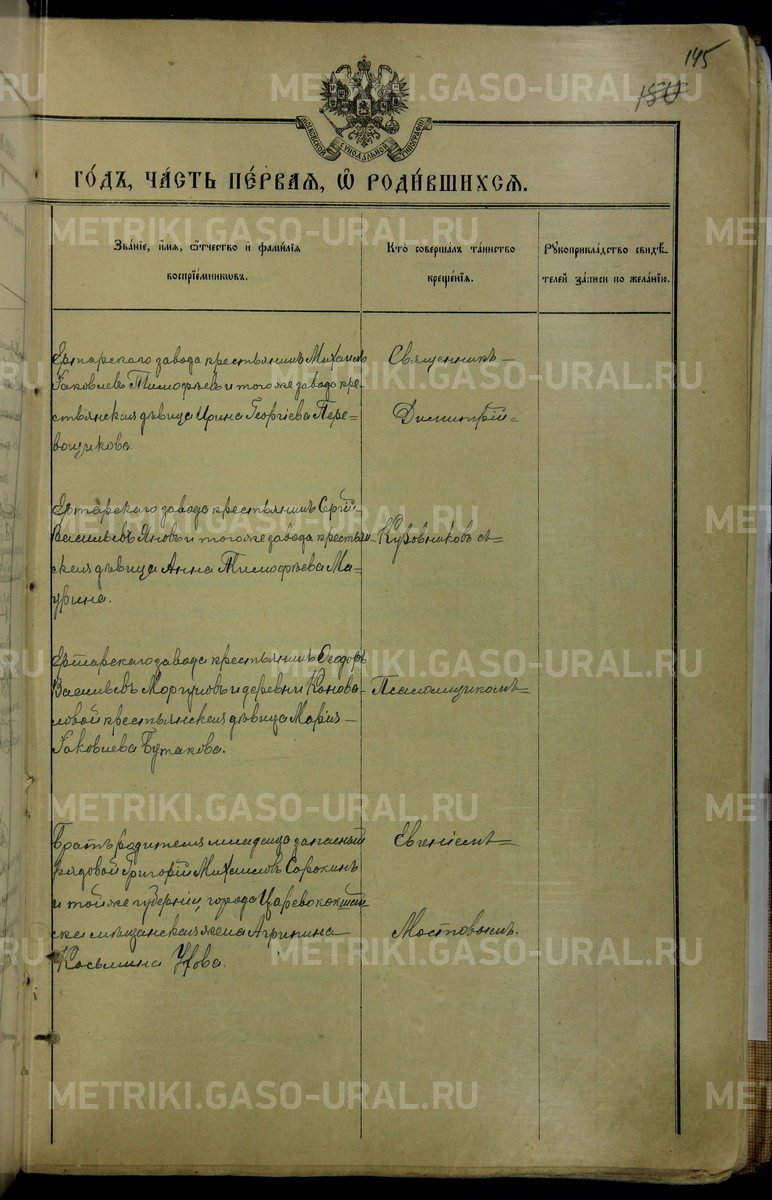 145
150
МОСКОВСКОЙ СѴНОДАЛЬНОЙ ТИПОГРАФІИ
ГО́ДЪ, ЧА́СТЬ ПЕ́РВАЯ, Ѿ РОДИ́ВШИХСЯ.
Зва́ніе, и́мя, ѻ҆́тчество и҆ фами́лія
воспріе́мниковъ.
Кто̀ соверша́лъ та́инство
креще́нія.
Рꙋкоприкла́дство свидѣ́-
телей за́писи по жела́нію.
Ертарскаго завода крестьянинъ Михаилъ
Іаковлевъ Тимофѣевъ и того же завода кре-
стьянская дѣвица Ирина Георгіева Пере-
вощикова.
Священникъ
Димитрій
Ертарскаго завода крестьянинъ Сергій
Васильевъ Яновъ и того же завода крестьян-
ская дѣвица Анна Тимофѣева Ма-
урина.
Кузовниковъ съ
Ертарскаго завода крестьянинъ Ѳеодоръ
Васильевъ Моргуновъ и деревни Конова-
ловой крестьянская дѣвица Марія
Іаковлева Бутакова.
Псаломщикомъ
Братъ родителя младенца запасный
рядовой Григорій Михаиловъ Сорокинъ
и той же губерніи, города Царевококшай-
ска мѣщанская жена Агрипина
Косьмина
Евгеніемъ
Мостовымъ.
METRIKI.GASO-URAL.RU